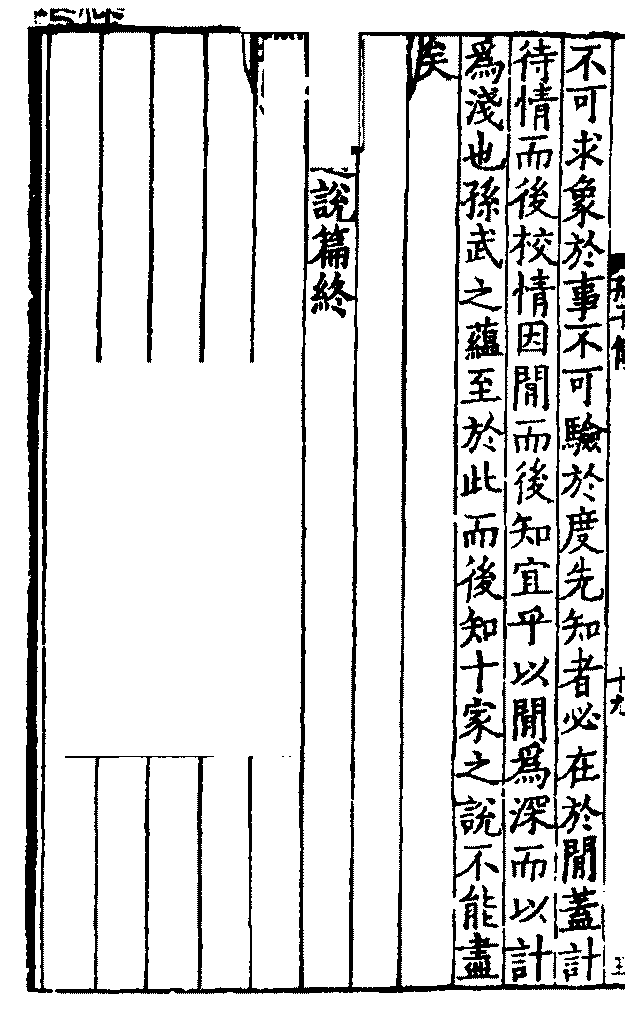 不可求象於事不可驗於度先知者必在於閒蓋計
待情而後校情因閒而後知宜乎以閒爲深而以計
爲淺也孫武之蘊至於此而後知十家之說不能盡
矣
說篇終
十九